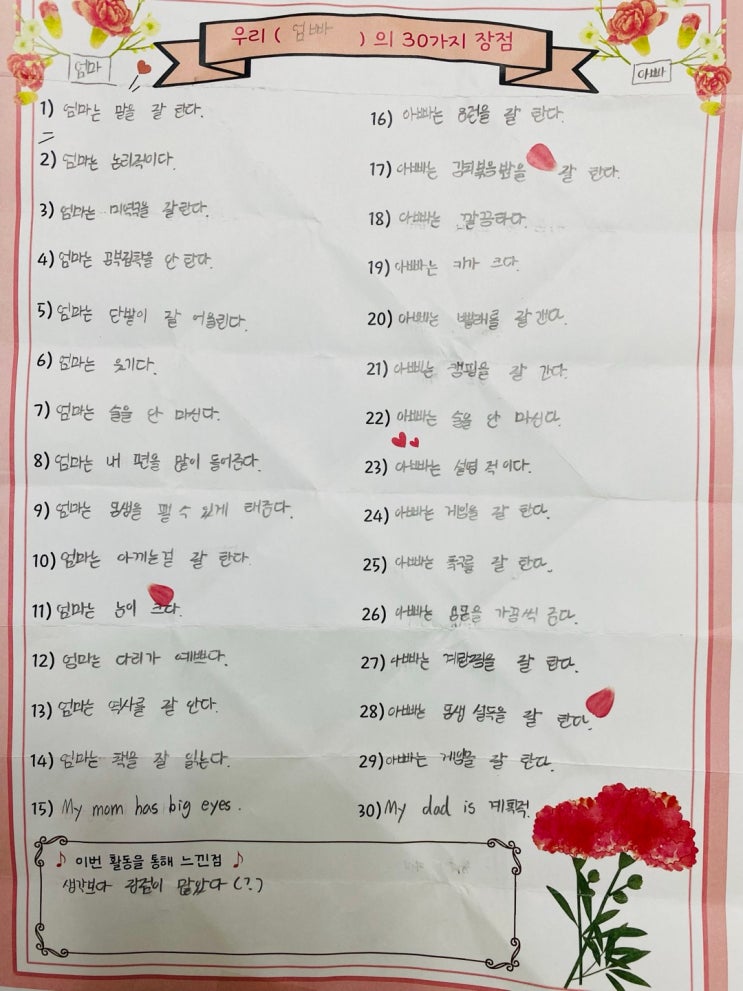 우리 ( 엄빠 ) 의 30가지 장점
엄마
아빠
1) 엄마는 말을 잘 한다.
2) 엄마는 논리적이다.
3) 엄마는 미역국을 잘한다.
4) 엄마는 공부림학을 안 한다.
5) 엄마는 단발이 잘 어울린다.
6) 엄마는 웃기다.
7) 엄마는 술을 안 마신다.
8) 엄마는 내 편을 많이 들어준다.
9) 엄마는 동생을 팰 수 있게 해준다.
10) 엄마는 아끼는걸 잘 한다.
11) 엄마는 눈이 크다.
12) 엄마는 다리가 예쁘다.
13) 엄마는 역사를 잘 안다.
14) 엄마는 책을 잘 읽는다.
15) My mom has big eyes.
16) 아빠는 운전을 잘 한다.
17) 아빠는 김치볶음밥을 잘 한다.
18) 아빠는 깔끔하다.
19) 아빠는 키가 크다.
20) 아빠는 빨래를 잘 갠다.
21) 아빠는 캠핑을 잘 간다.
22) 아빠는 술을 안 마신다.
23) 아빠는 설명적이다.
24) 아빠는 게임을 잘 한다.
25) 아빠는 족구를 잘 한다.
26) 아빠는 용돈을 가끔씩 준다.
27) 아빠는 계란찜을 잘 한다.
28) 아빠는 동생 설득을 잘 한다.
29) 아빠는 게임을 잘 한다.
30) My dad is 계획적.
♪ 이번 활동을 통해 느낀점 ♪
생각보다 장점이 많았다 (?)